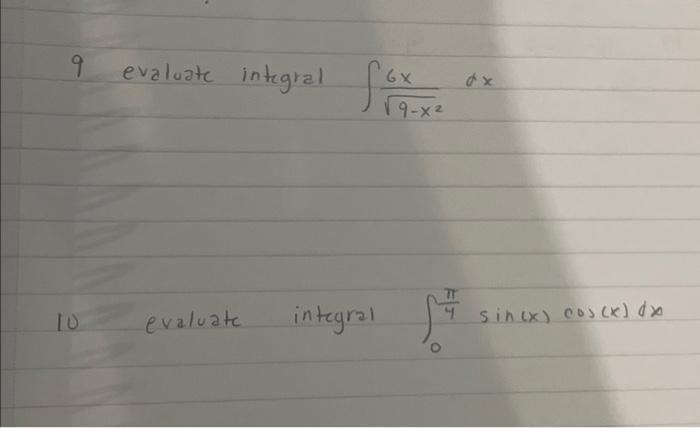 9 evaluate integral ∫ 6x/√9-x² dx
10 evaluate integral ∫₀^π/4 sin(x) cos(x) dx